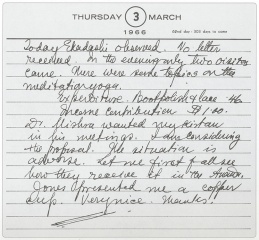 THURSDAY 3 MARCH
1966
62nd day - 303 days to come
Today Ekadashi observed. No letter
received. In the evening only two visitors
came. There were some topics on the
meditation yoga.
Expenditure. Bootpolish & lace -46
Income contribution $1/00.
Dr. Mishra wanted my kirtan
in his meetings. I am considering
the proposal. The situation is
adverse. Let me first of all see
how they receive it in the
Jones presented me a copper
cup. Very nice. Thanks!